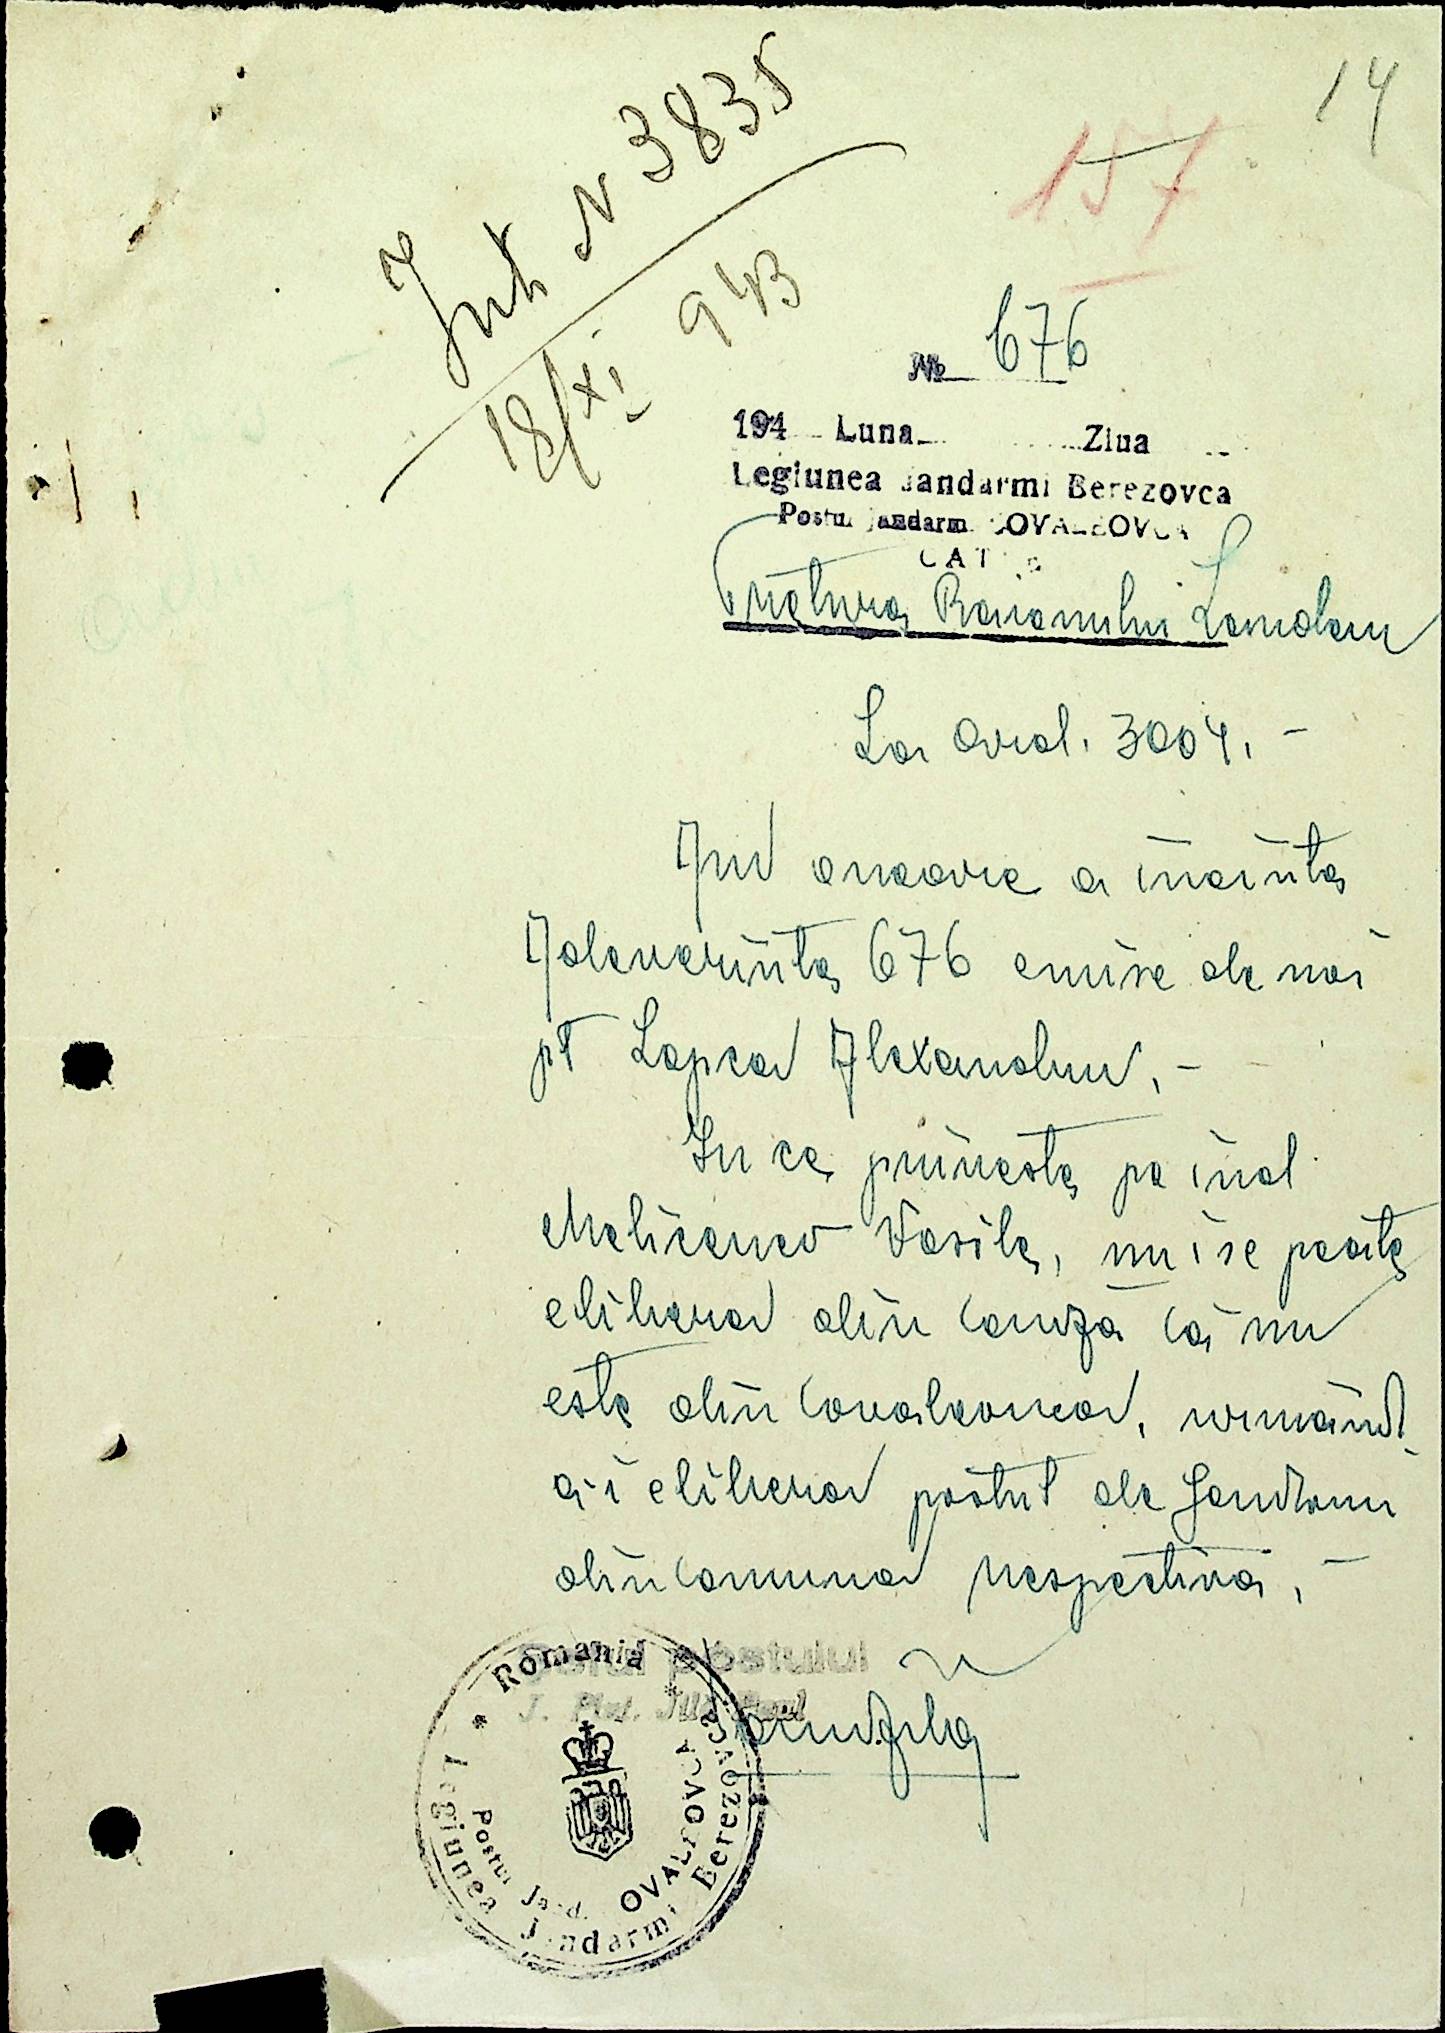 14
157
Int. N 3835
18/XI 943
№ 676
194 Luna Ziua
Legiunea Jandarmi Berezovca
Postul Jandarmi COVALEOVCA
CATRE
Pretura Raionului Landau
La Ord. 3004.-
Am onoare a inainta
Adeverinta 676 emise de noi
pt Alexandru.-
In ce priveste pe ind.
Vasile, nu i se poate
elibera din cauză că nu
este din Covaleovca, urmând
a-i elibera postul de Jandarmi
din comuna respectivă.-
Seful postului
J. Plot.
România
Legiunea Jandarmi Berezovca
Postul Jand. COVALEOVCA